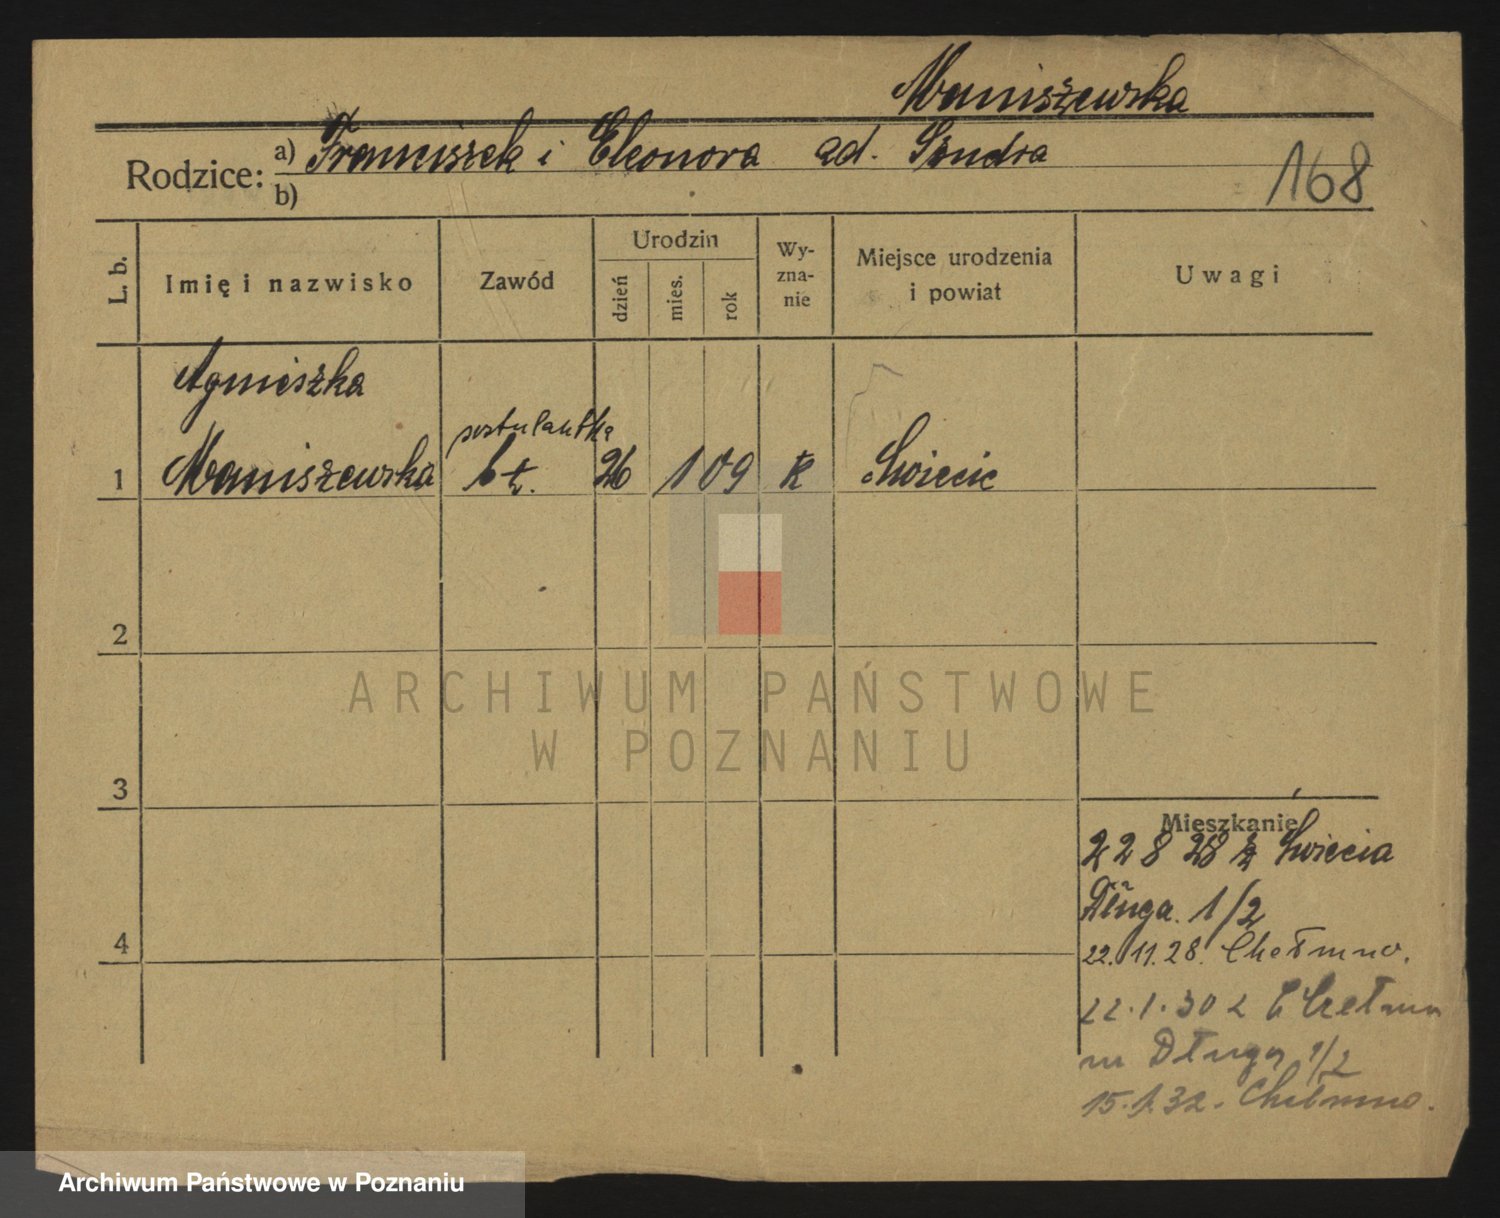 Maniszewska
Rodzice: a) Franciszek i Eleonora ad. Szudra
b)
168
L. b.
Imię i nazwisko
Zawód
Urodzin
dzień
mies.
rok
Wy-
zna-
nie
Miejsce urodzenia
i powiat
Uwagi
Agnieszka
postulantka
1 Maniszewska bz. 26 1 09 k Swiecie
2
3
4
Mieszkanie
22 8 28 z Swiecia
Długa. 1/2
22.11.28. Chełmno.
22.1.30 z Chełmna
Długa 1/2
15.1.32. Chełmno.
ARCHIWUM PAŃSTWOWE
W POZNANIU
Archiwum Państwowe w Poznaniu